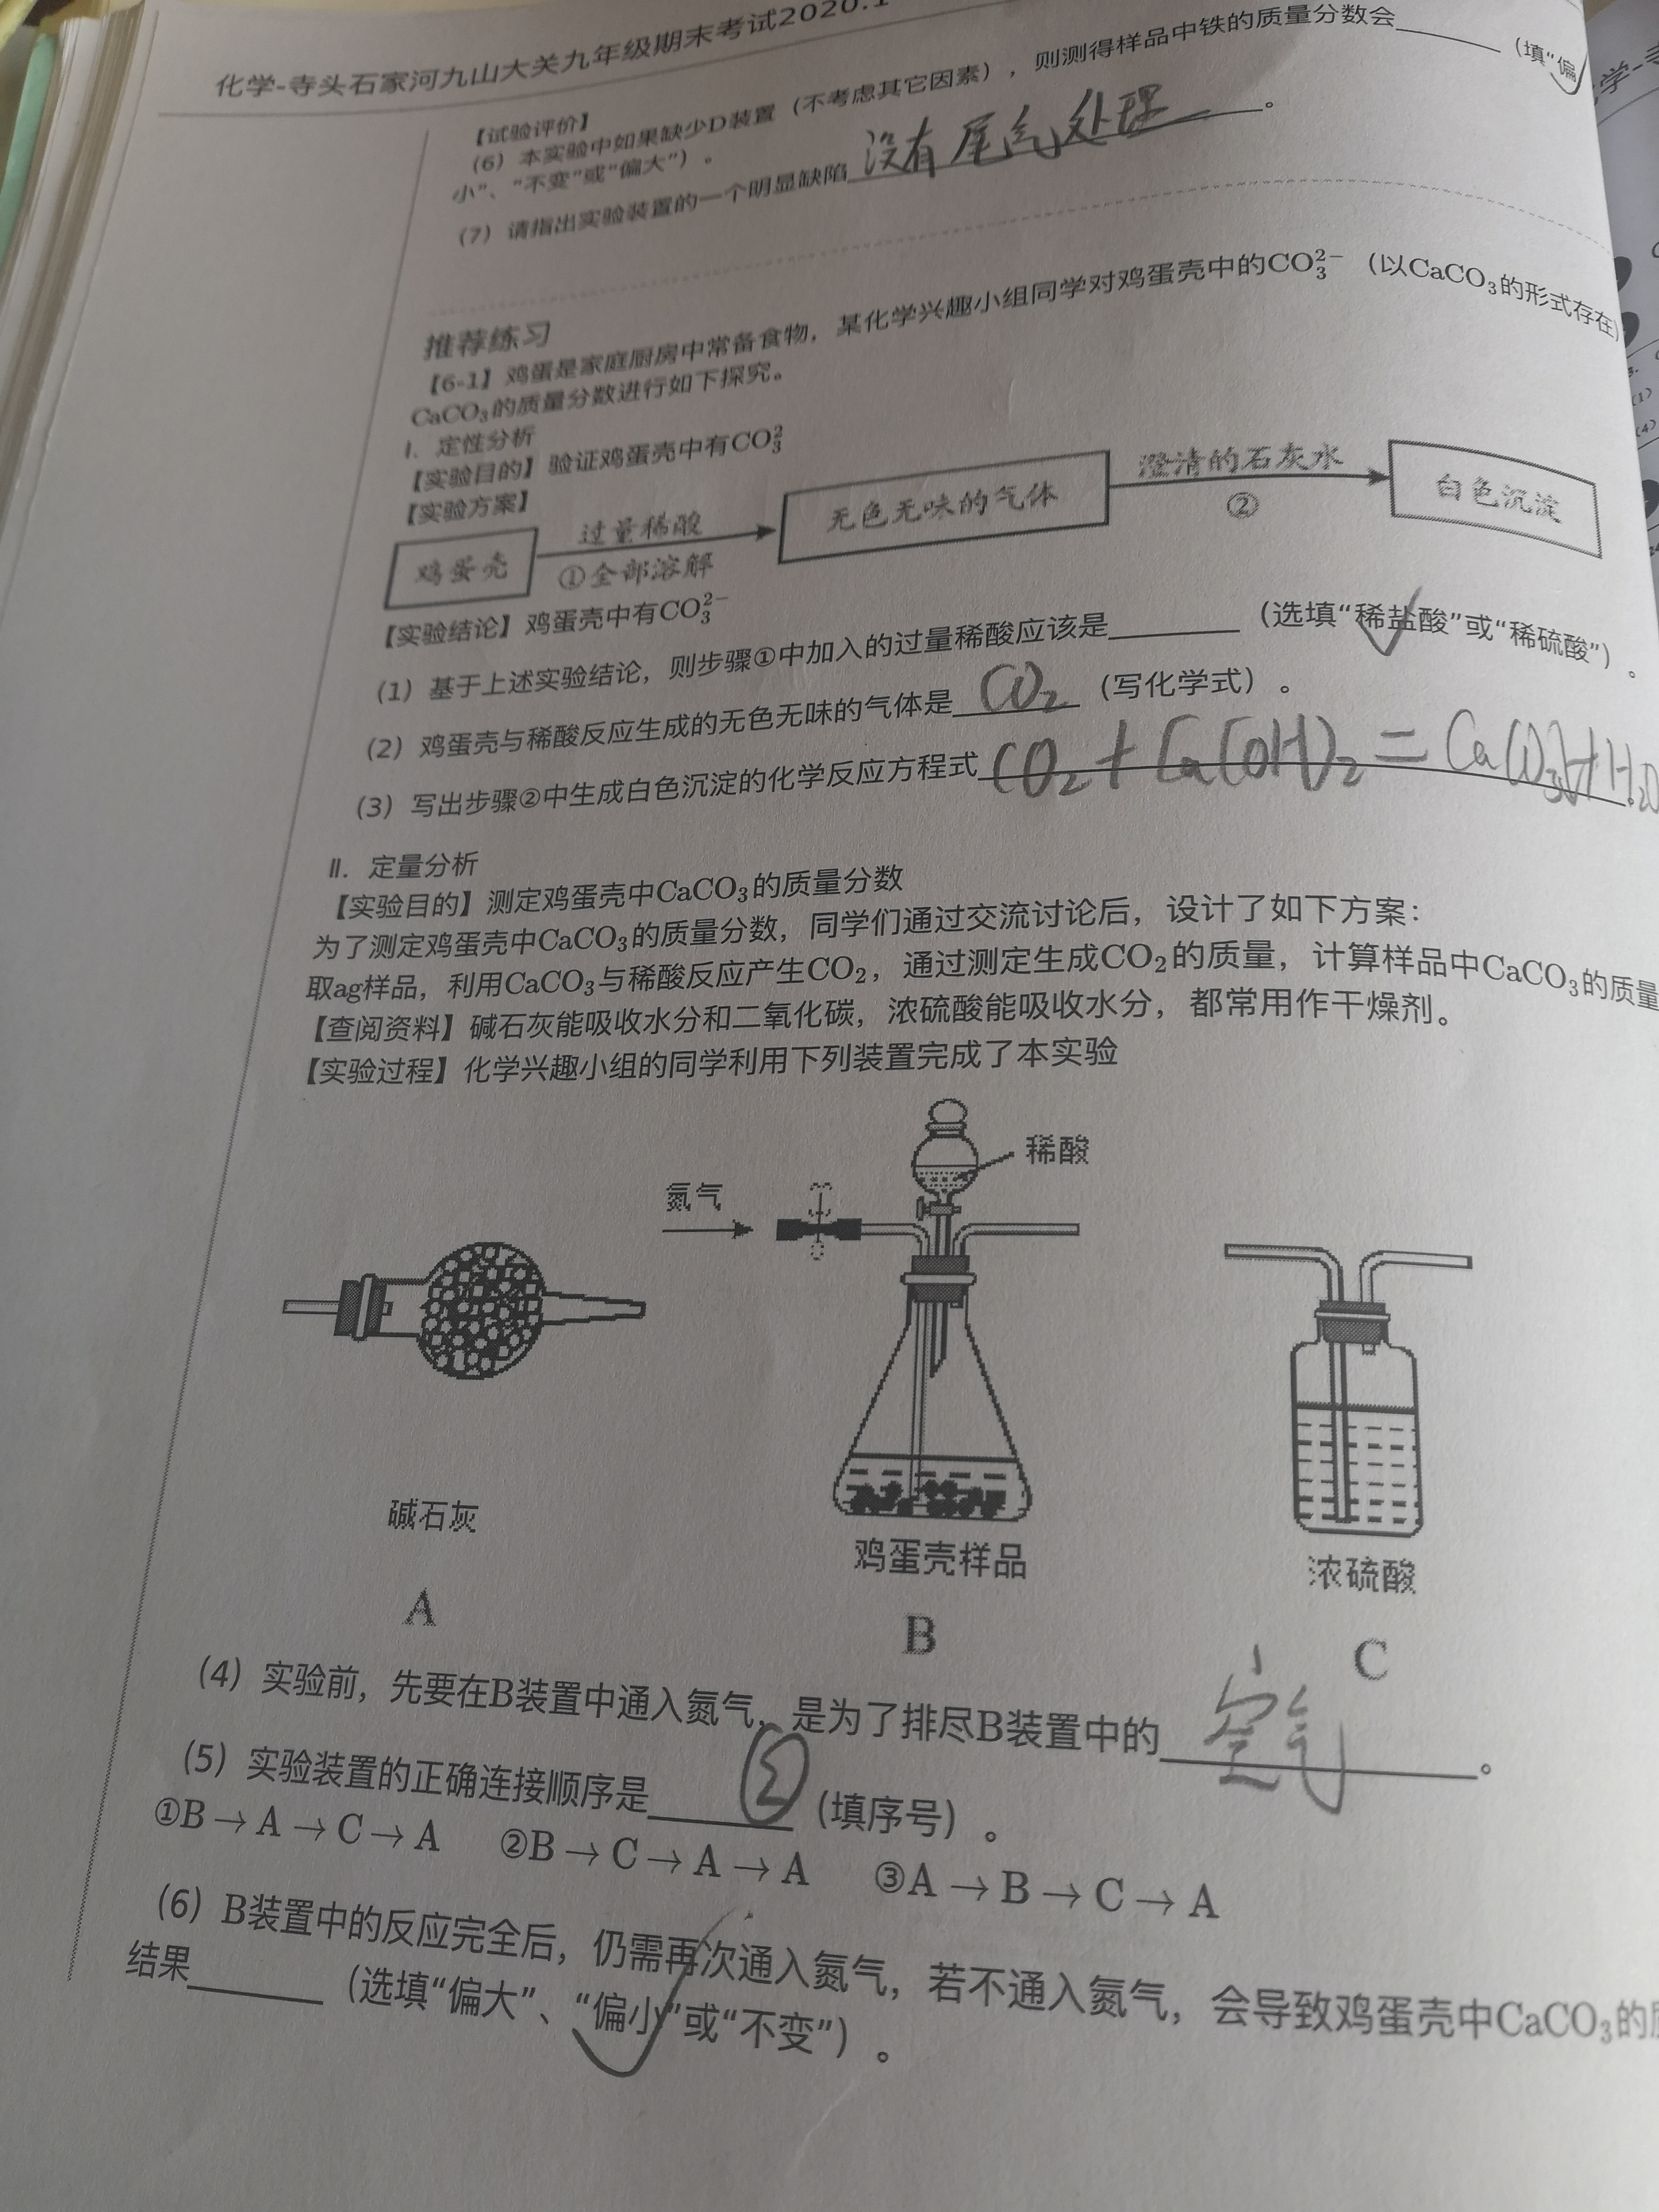 化学-寺头石家河九山大关九年级期末考试2020.1
【试验评价】
(6) 本实验中如果缺少D装置（不考虑其它因素），则测得样品中铁的质量分数会______（填“偏
小”、“不变”或“偏大”）。
(7) 请指出实验装置的一个明显缺陷 没有尾气处理 。
推荐练习
【6-1】鸡蛋是家庭厨房中常备食物，某化学兴趣小组同学对鸡蛋壳中的CO₃²⁻（以CaCO₃的形式存在）
CaCO₃的质量分数进行如下探究。
Ⅰ. 定性分析
【实验目的】验证鸡蛋壳中有CO₃²
【实验方案】
鸡蛋壳 过量稀酸 ①全部溶解 无色无味的气体 澄清的石灰水 ② 白色沉淀
【实验结论】鸡蛋壳中有CO₃²⁻
(1) 基于上述实验结论，则步骤①中加入的过量稀酸应该是______（选填“稀盐酸”或“稀硫酸”）。
(2) 鸡蛋壳与稀酸反应生成的无色无味的气体是 CO₂ （写化学式）。
(3) 写出步骤②中生成白色沉淀的化学反应方程式 CO₂+Ca(OH)₂=CaCO₃↓+H₂O
Ⅱ. 定量分析
【实验目的】测定鸡蛋壳中CaCO₃的质量分数
为了测定鸡蛋壳中CaCO₃的质量分数，同学们通过交流讨论后，设计了如下方案：
取ag样品，利用CaCO₃与稀酸反应产生CO₂，通过测定生成CO₂的质量，计算样品中CaCO₃的质量
【查阅资料】碱石灰能吸收水分和二氧化碳，浓硫酸能吸收水分，都常用作干燥剂。
【实验过程】化学兴趣小组的同学利用下列装置完成了本实验
稀酸
氮气
碱石灰
鸡蛋壳样品
浓硫酸
A
B
C
(4) 实验前，先要在B装置中通入氮气，是为了排尽B装置中的 空气 。
(5) 实验装置的正确连接顺序是 ② （填序号）。
①B→A→C→A ②B→C→A→A ③A→B→C→A
(6) B装置中的反应完全后，仍需再次通入氮气，若不通入氮气，会导致鸡蛋壳中CaCO₃的
结果______（选填“偏大”、“偏小”或“不变”）。